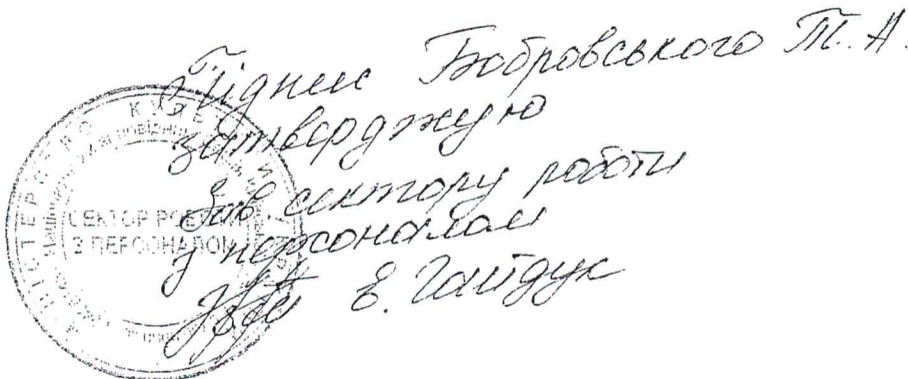 Підпис Бобровського Т.А.
затверджую
Зав. сектору роботи
з персоналом
Є. Гайдук
МІНІСТЕРСТВО КУЛЬТУРИ
СЕКТОР РОБОТИ
З ПЕРСОНАЛОМ